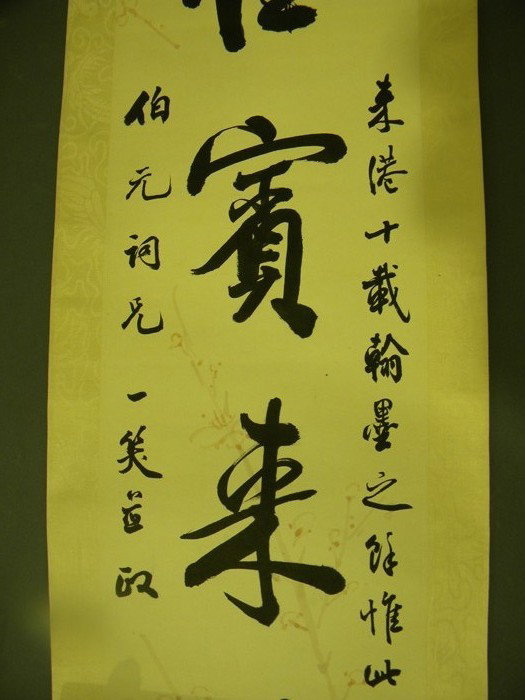 来港十載翰墨之餘惟此
賓来
伯元詞兄 一笑並政